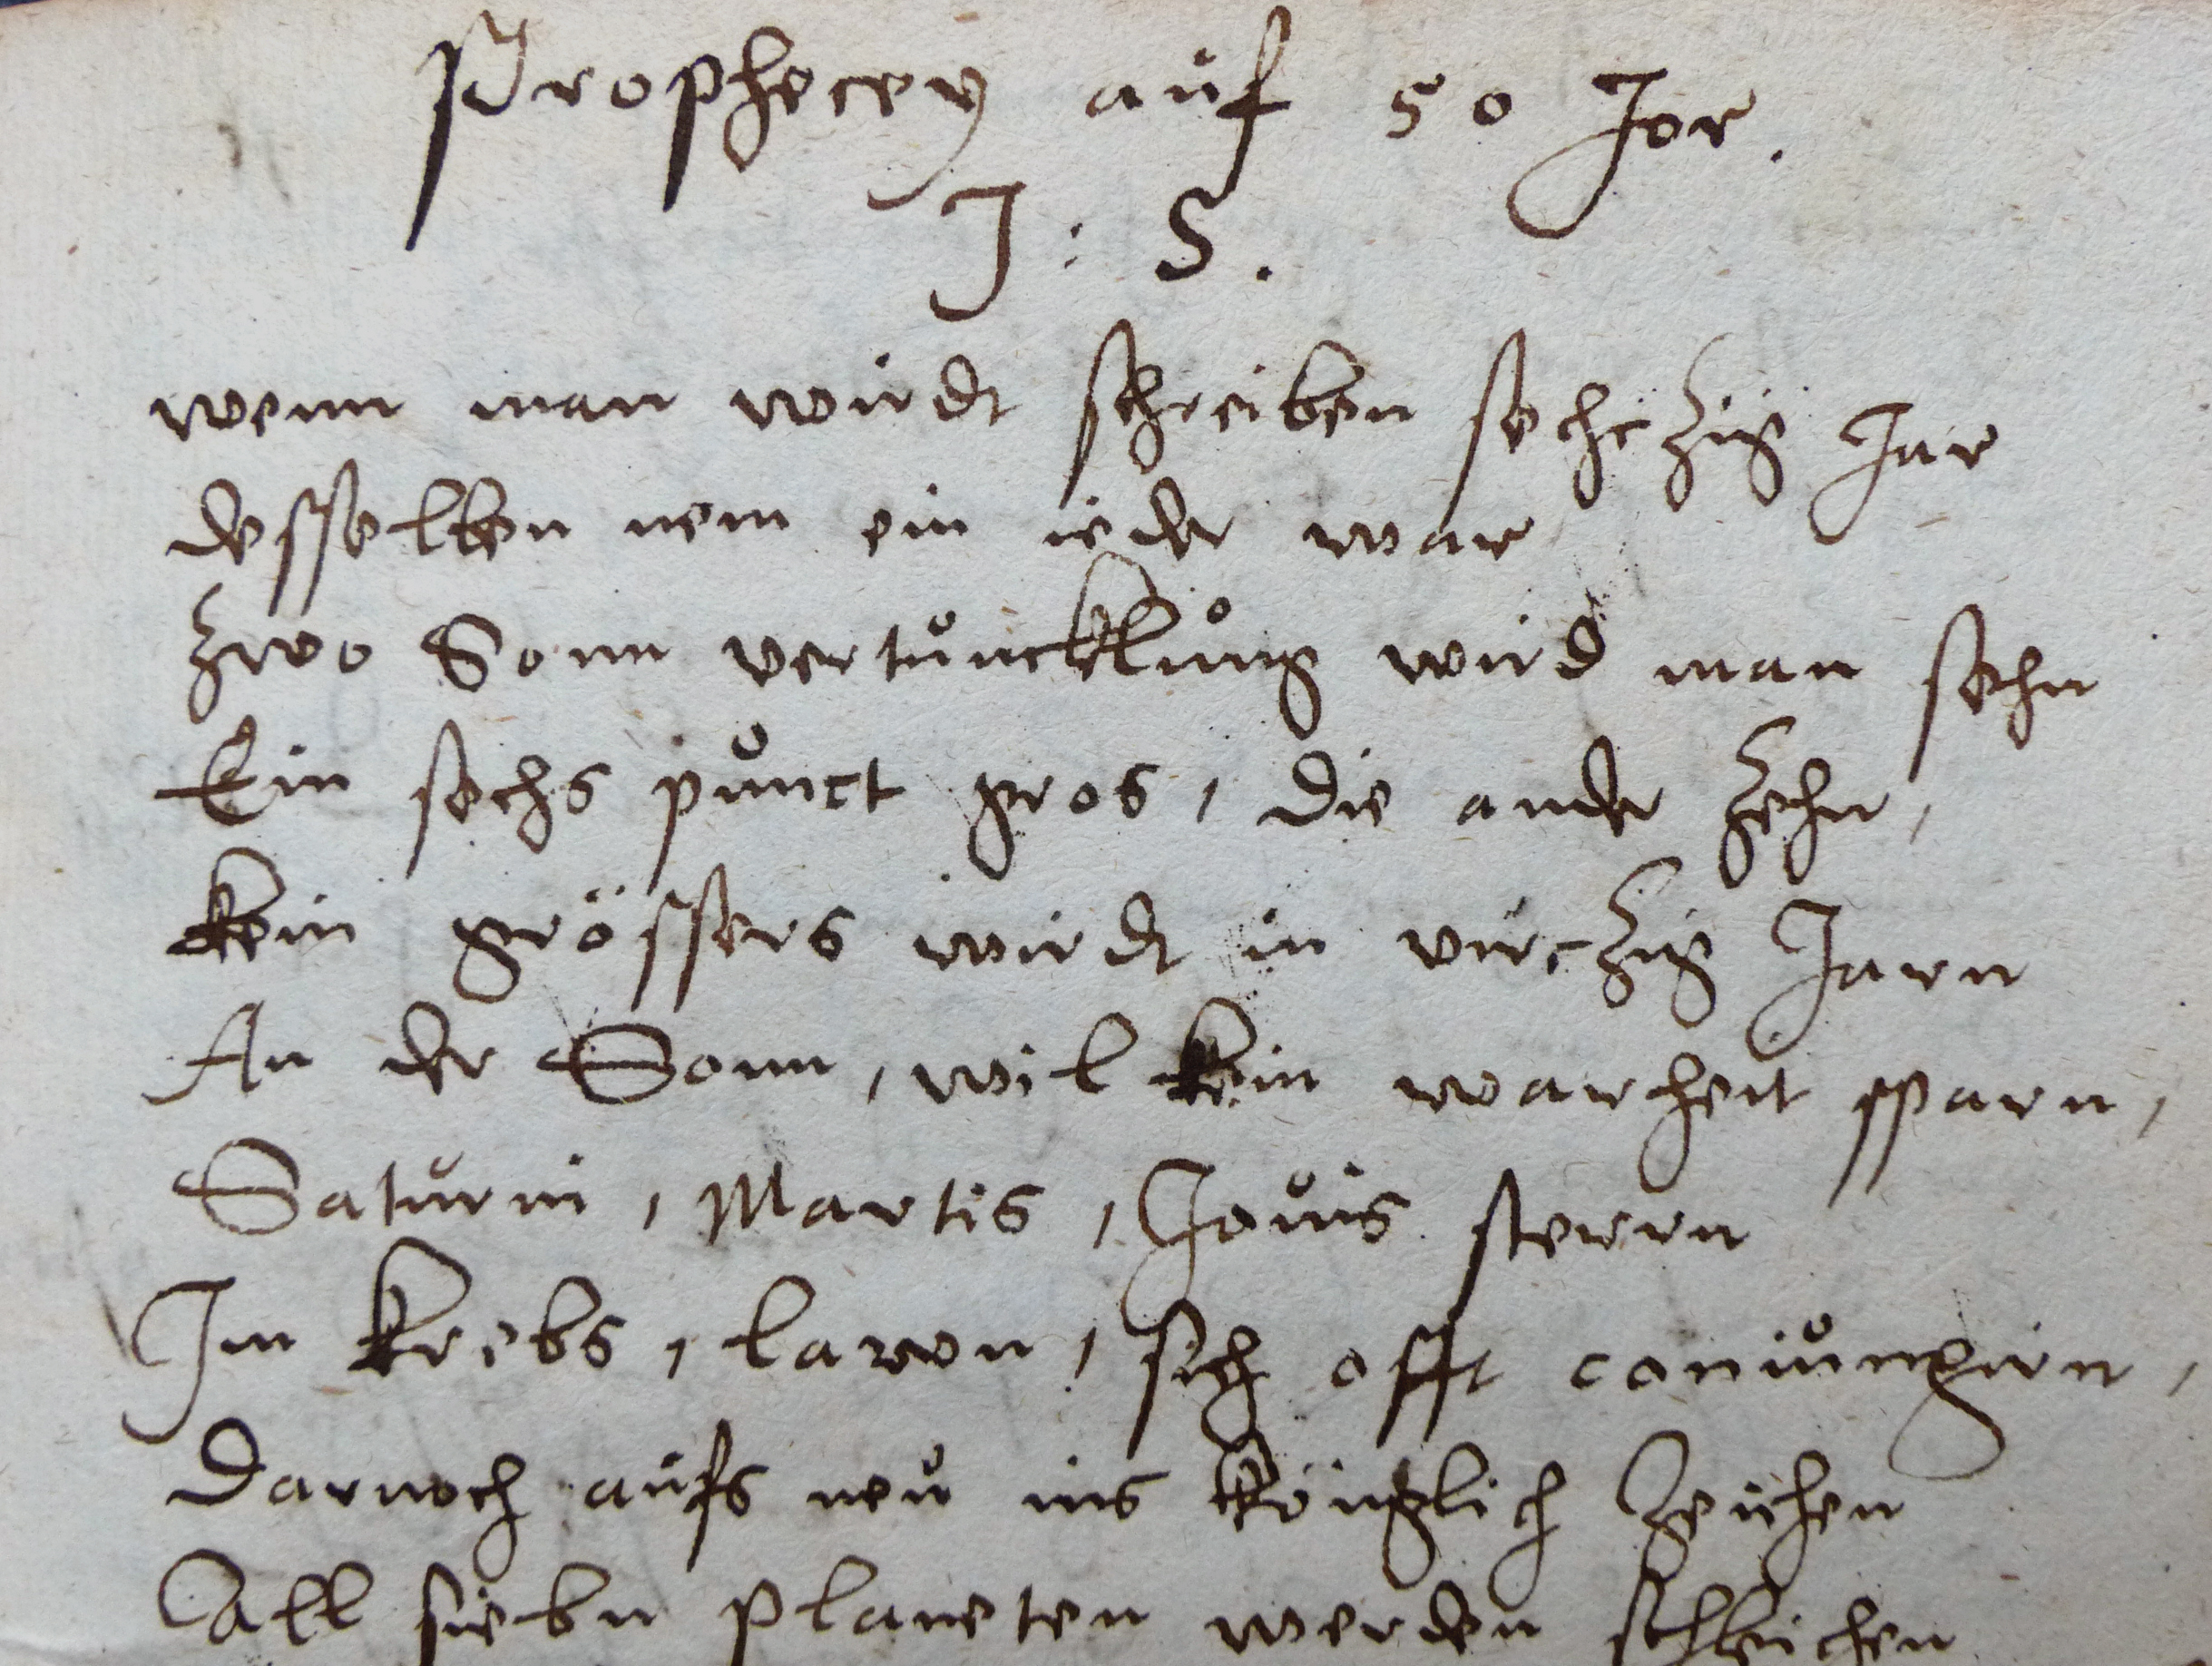 Prophecey auf 50 Jor.
J : S.
wenn man wirdt schreiben sechczig Jar
desselben nem ein ieder war
Zwo Sonn vertuncklung wird man sehn
Ein sechs punct gros, die ander Zehn,
kein grössers wirdt in virczig Jarn
An der Sonn, wil kein warheit sparn,
Saturni, Martis, Jouis sterrn
Im Krebs, lawn, sich offt coniungirn,
Darnoch aufs neu ins königlich Zeichen
All siebn planeten werden schleichen